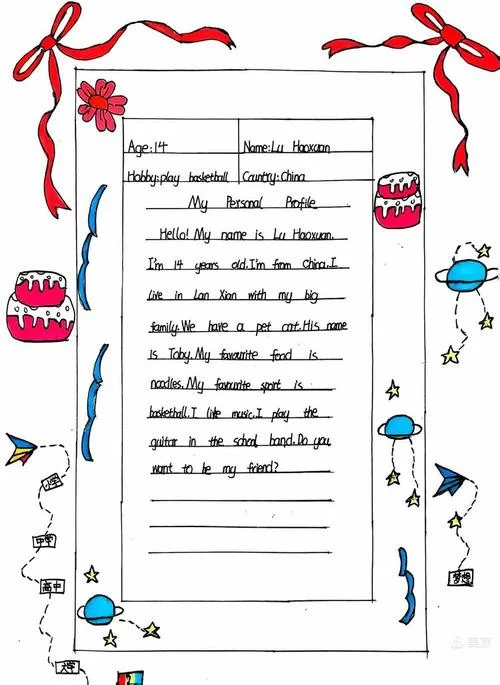 Age:14
Name:Lu Haoxuan
Hobby:play basketball
Country:China
My Personal Profile
Hello! My name is Lu Haoxuan.
I'm 14 years old.I'm from China.I
live in Lan Xian with my big
family.We have a pet cat.His name
is Toby.My favourite food is
noodles.My favourite sport is
basketball.I like music.I play the
guitar in the school band.Do you
want to be my friend?
小学
中学
高中
大学
梦想